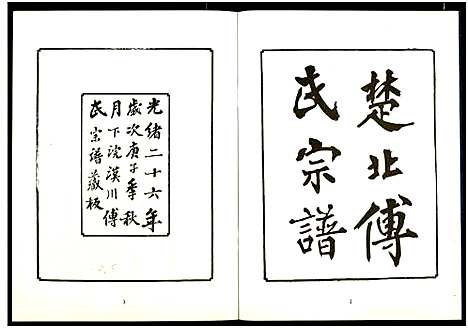 楚北傅
氏宗譜
光緒二十六年
歲次庚子季秋
月下浣漢川傅
氏宗譜藏板